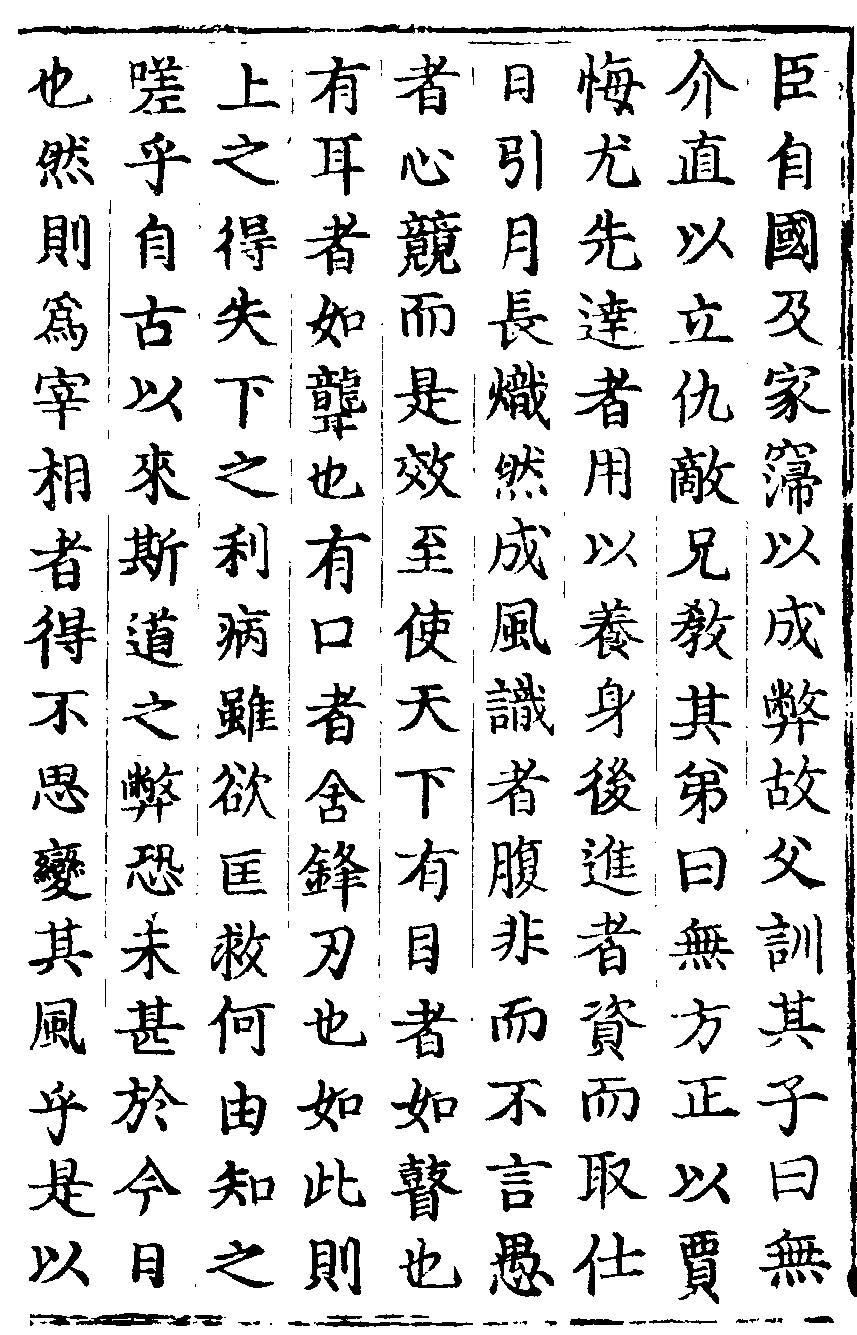 臣自國及家寖以成弊故父訓其子曰無
介直以立仇敵兄教其弟曰無方正以賈
悔尤先達者用以養身後進者資而取仕
日引月長熾然成風識者腹非而不言愚
者心競而是效至使天下有目者如瞽也
有耳者如聾也有口者含鋒刃也如此則
上之得失下之利病雖欲匡救何由知之
嗟乎自古以來斯道之弊恐未甚於今日
也然則爲宰相者得不思變其風乎是以